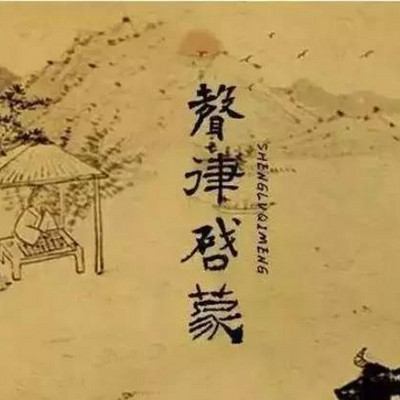 聲律啟蒙
SHENGLVQIMENG